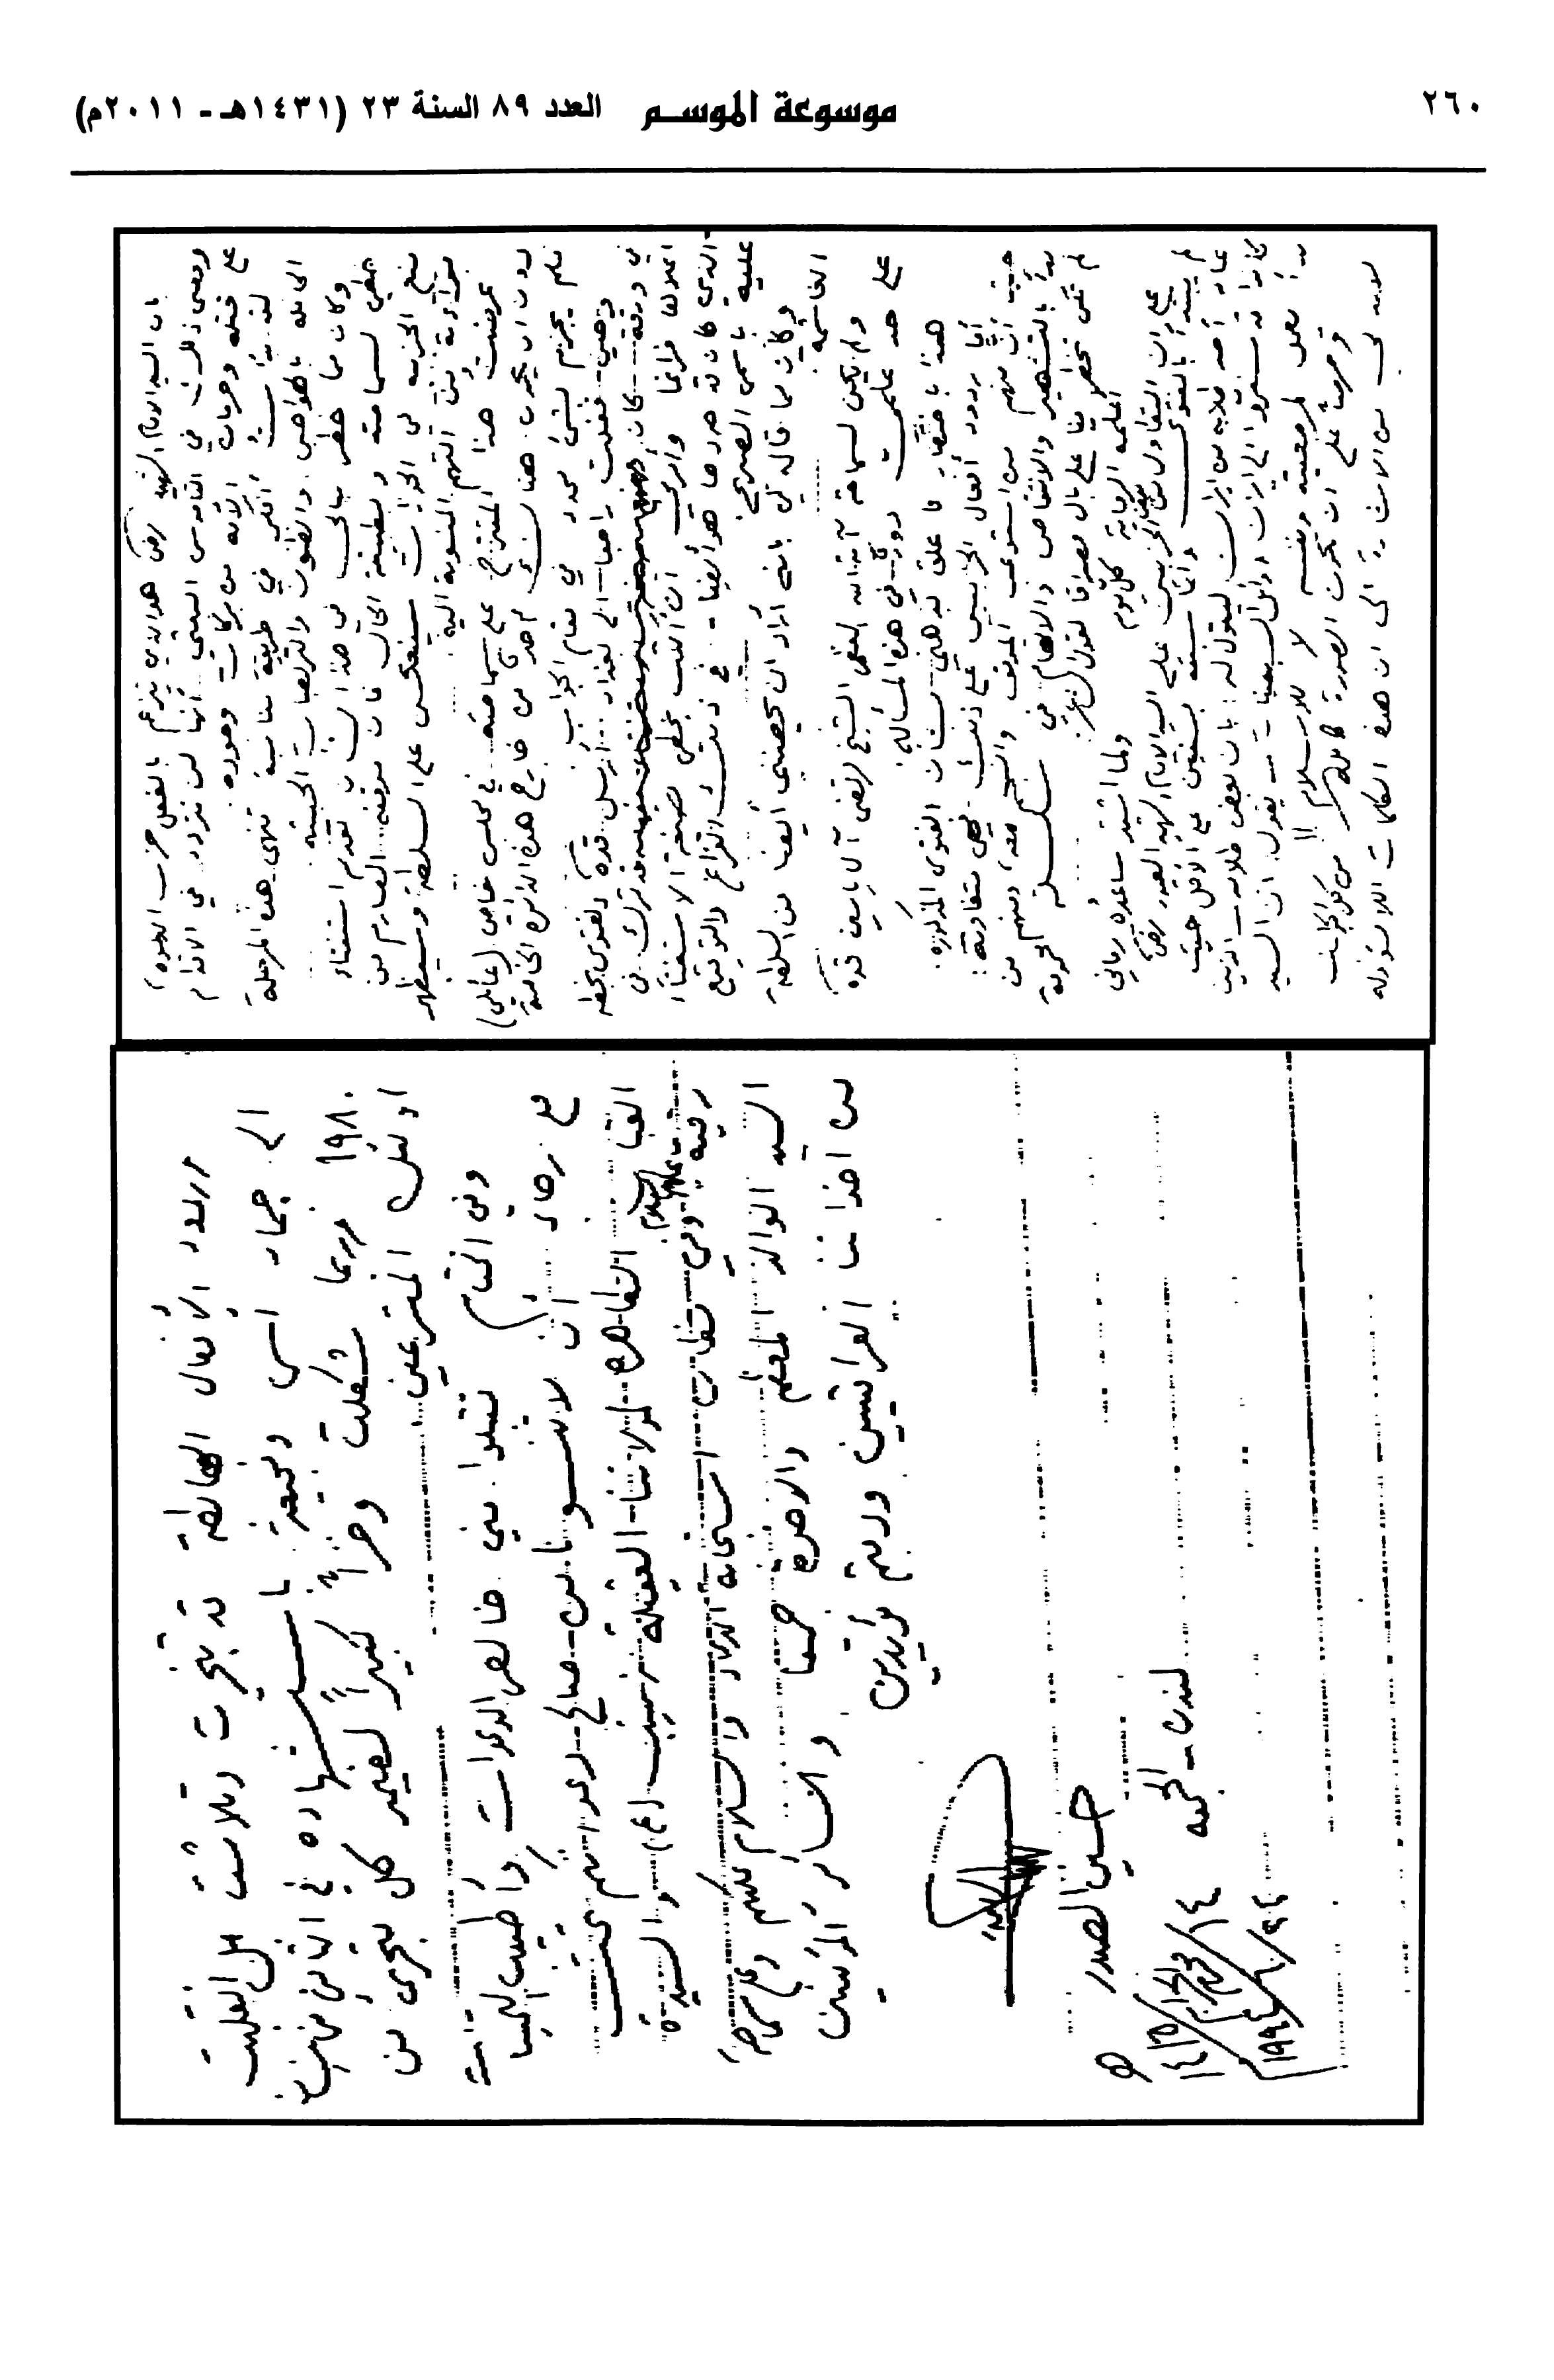 ٢٦٠ موسوعة الموسم العدد ٨٩ السنة ٢٣ (١٤٣١هـ - ٢٠١١م)
بان السيد الامام الشهيد رض هو الذي يتزعم بالفعل حزب الدعوة
ومعنى ذلك في القاموس البعثي أنها لن تتردد في الاقدام
على قتله وحرمان الأمة من بركات وجوده
لقد بدأت أفكر في طريقة مناسبة تنهي هذه المرحلة
المليئة بالهواجس والظنون والتربصات الخبيثة
وكان مما خطر ببالي في هذا الشأن تقديم استفتاء
خطي لسماحته وبطبيعة الحال فان موقفه الصارم من
منع الحزبية في الحوزات سينعكس على السلطة وسيظهر
براءته من التهم المنسوبة اليه
عرضت هذا المقترح على سماحته في مجلس خاص (عائلي)
دون ان يحضر هناك أحد من خارج هذه الدائرة الخاصة
فلم يجزم بشئ محدد في مقام الجواب
وحين قفلت راجعا الى بغداد أرسل قده الفتوى بخطه
في ورقة كان قد ترك
اعلاها فارغا وأمرني ان أكتب بخطي صيغة الاستفتاء
الذي كان قد حددها هو أيضا في ذلك الفراغ والتوقيع
عليه باسمي الصريح
وكان مما قاله لي بأنه أراد ان يحصنني أيضا من السلطة
الغاشمة
ولم يكن لسماحة آية الله العظمى الشيخ مرتضى آل ياسين قده
على حد علمي دور في هذه المسألة
هذا باختصار ما علق بذهني بشأن الفتوى المذكورة
أما ردود أفعال الحزبيين على ذلك فهي متفاوتة:
حيث أن منهم من استوعب الموقف ومنهم من
بدأ بالتشهير والانتقاص والاتهام في
لم تكن تخطر منا على بال مصداقا لقول الشاعر
أعلمه الرماية كل يوم ولما اشتد ساعده رماني
على ان التطاول من بعض الحزبيين على السيد الامام الشهيد الصدر رض
لم يبدأ بالفتوى وانما سبقه بسنتين على الأقل حيث
عاد أحد طلابه من ايران ليقول له: بان بعض طلابك الذين
كانوا قد سفروا الى ايران أوائل السبعينات يقول ان السيد
بدأ يعمل لمرجعيته ونفسه لا للاسلام !!
وحرصا على ان تكون الصورة كاملة من كل الجهات
لابد لي من الاشارة الى ان هذه الكلمات اللامسؤولة
وردود الأفعال الخاطئة قد تبخرت وتلاشت بل انقلبت
الى جمار أسى وفجيعة باستشهاده في الثامن من نيسان
١٩٨٠ وربما شكلت وخزاً كبيراً لضمير كل متجرئ من
أولئك المتسرعين
وفي الختام تقبلوا مني خالص الدعوات وأطيب التحيات
مع رجائي أن لا تنسونا من صالح دعواتكم تحت
القباب الطاهرة لمولاتنا العقيلة زينب (ع) والسيدة
رقية عليها السلام وفي مظان استجابة الدعاء والسلام عليكم وعلى سماحة
السيد الوالد المعظم والاخوة جميعا والسائرة المؤمنين
من اخواننا العراقيين ودمتم مؤيدين
حسين الصدر
لندن - الجمعة
١٤/محرم الحرام/١٤١٥ هـ
٢٤/٦/١٩٩٤م